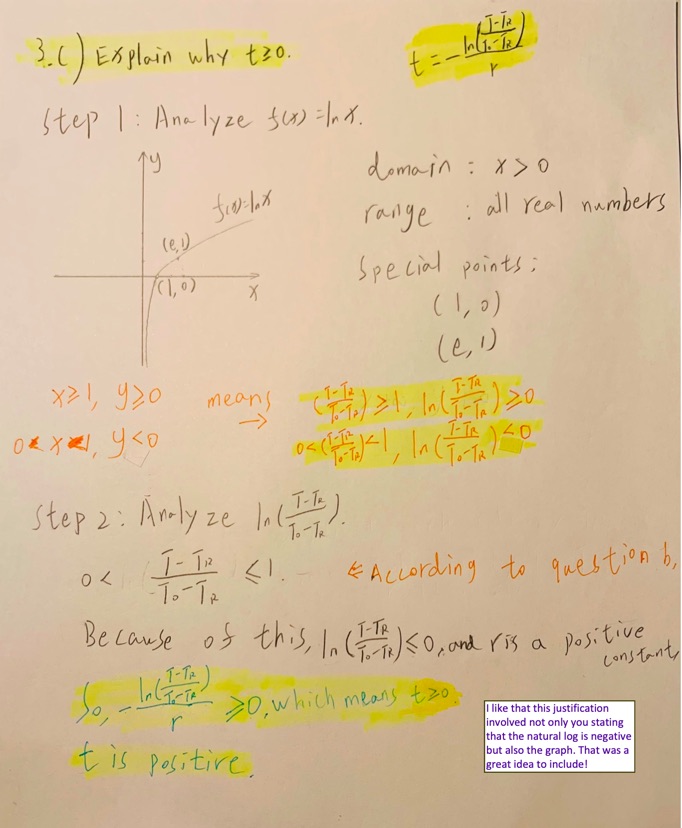 3.c) Explain why t≥0.
t = -ln((T-TR)/(T₀-TR))/r
Step 1: Analyze f(x)=lnx.
y
f(x)=lnx
(e,1)
(1,0)
x
domain : x>0
range : all real numbers
Special points:
(1,0)
(e,1)
x≥1, y≥0 means → ((T-TR)/(T₀-TR))≥1, ln((T-TR)/(T₀-TR))≥0
0<x<1, y<0 0<((T-TR)/(T₀-TR))<1, ln((T-TR)/(T₀-TR))<0
Step 2: Analyze ln((T-TR)/(T₀-TR)).
0< (T-TR)/(T₀-TR) ≤1. ←According to question b,
Because of this, ln((T-TR)/(T₀-TR))≤0, and r is a positive
constant,
So, -ln((T-TR)/(T₀-TR))/r ≥0, which means t≥0.
t is positive.
I like that this justification
involved not only you stating
that the natural log is negative
but also the graph. That was a
great idea to include!